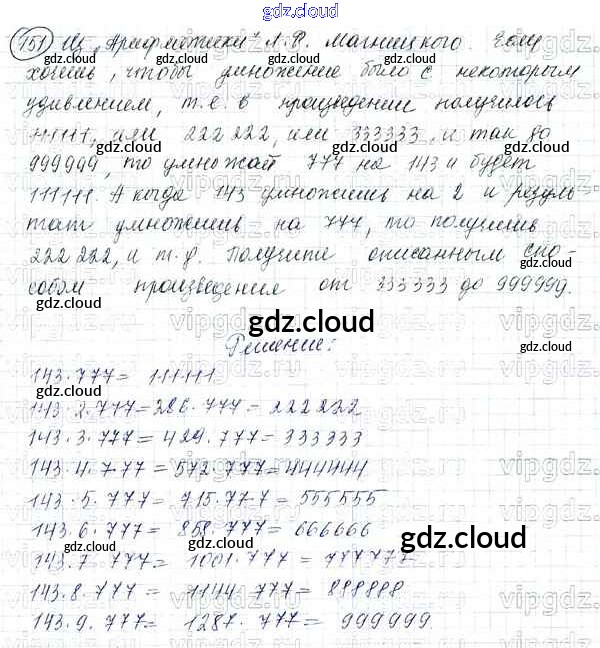 gdz.cloud
151 Из „Арифметики" Л.Ф. Магницкого. Коли
хочешь, чтобы умножение было с некоторым
удивлением, т.е. в произведении получилось
111111, или 222 222, или 333333, и так до
999999, то умножай 777 на 143 и будет
111111. А когда 143 умножишь на 2 и резуль-
тат умножишь на 777, то получишь
222 222, и т.д. Получите описанным спо-
собом произведения от 333333 до 999999.
gdz.cloud
Решение:
143·777= 111111
143·2·777=286·777=222222
143·3·777=429·777=333333
143·4·777=572·777=444444
143·5·777= 715·777=555555
143·6·777= 858·777=666666
143·7·777= 1001·777=777777
143·8·777= 1144·777=888888
143·9·777= 1287·777=999999